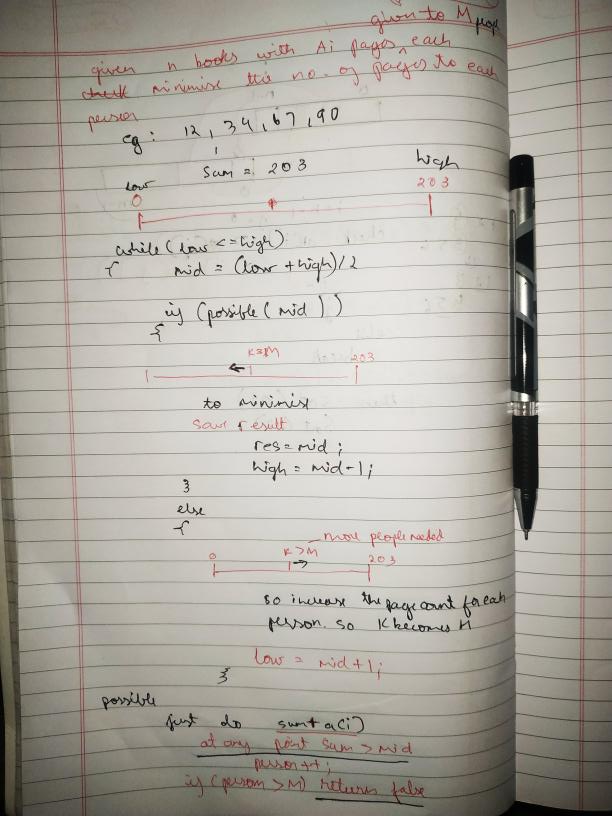 given to M people
given n books with Ai pages, each
check minimise the no. of pages to each
person
eg: 12, 34, 67, 90
Sum = 203
low high
0 203
while (low <= high)
{ mid = (low + high)/2
if (possible (mid))
{
K=M 203
to minimise
save result
res = mid;
high = mid-1;
}
else
{
more people needed
0 K>M 203
so increase the page count for each
person. so K becomes M
low = mid+1;
}
possible
just do sum+a(i)
at any point sum > mid
person++;
if (person > M) returns false